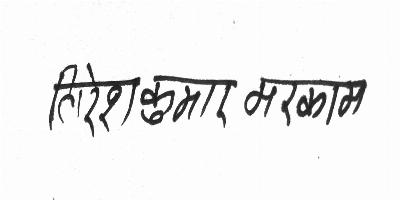 गिरेश कुमार मरकाम